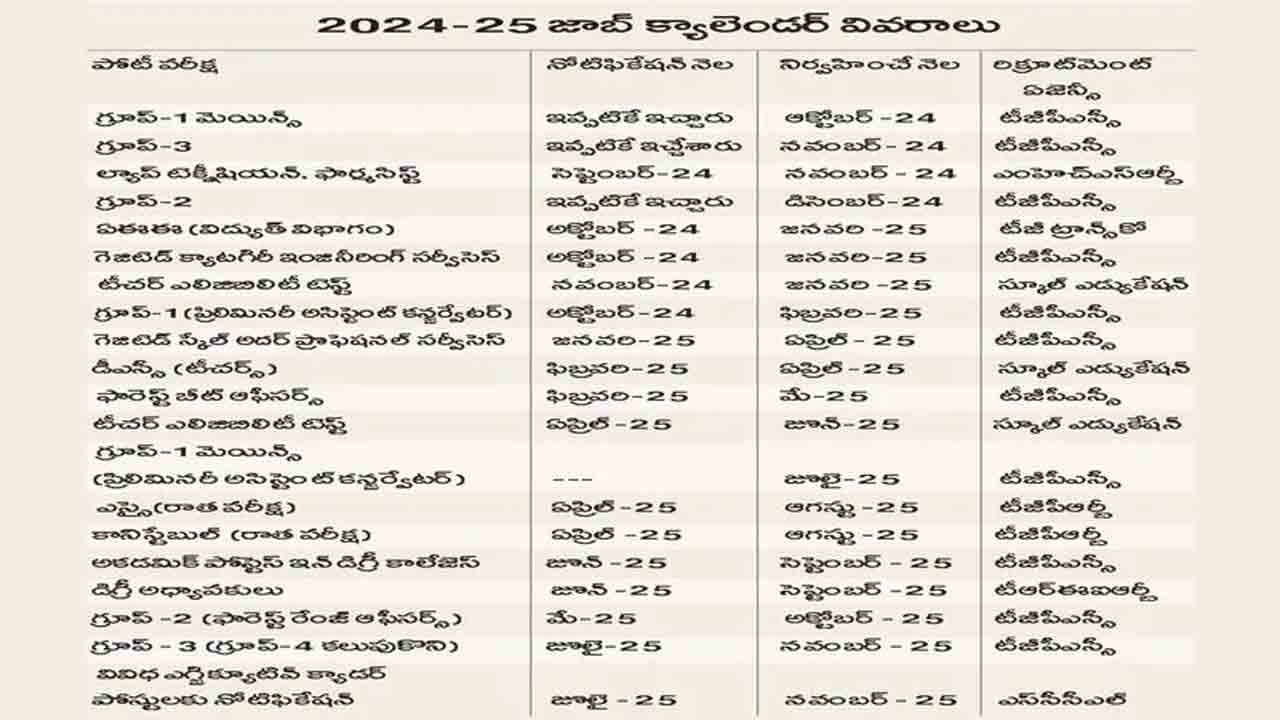 2024-25 జాబ్ క్యాలెండర్ వివరాలు
పోటీ పరీక్ష నోటిఫికేషన్ నెల నిర్వహించే నెల రిక్రూట్‌మెంట్
ఏజెన్సీ
గ్రూప్-1 మెయిన్స్ ఇప్పటికే ఇచ్చారు ఆక్టోబర్ -24 టీజీపీఎస్సీ
గ్రూప్-3 ఇప్పటికే ఇచ్చేశారు నవంబర్- 24 టీజీపీఎస్సీ
ల్యాప్ టెక్నీషియన్. ఫార్మసిస్ట్ సెప్టెంబర్-24 నవంబర్ - 24 ఎంహెచ్ఎస్ఆర్బీ
గ్రూప్-2 ఇప్పటికే ఇచ్చారు డిసెంబర్-24 టీజీపీఎస్సీ
ఏఈఈ (విద్యుత్ విభాగం) అక్టోబర్ -24 జనవరి -25 టీజీ ట్రాన్స్‌కో
గెజిటెడ్ క్యాటగిరీ ఇంజినీరింగ్ సర్వీసెస్ అక్టోబర్ -24 జనవరి-25 టీజీపీఎస్సీ
టీచర్ ఎలిజిబిలిటీ టెస్ట్ నవంబర్-24 జనవరి -25 స్కూల్ ఎడ్యుకేషన్
గ్రూప్-1 (ప్రిలిమినరీ అసిస్టెంట్ కన్జర్వేటర్) అక్టోబర్-24 ఫిబ్రవరి-25 టీజీపీఎస్సీ
గెజిటెడ్ స్కేల్ అదర్ ప్రొఫెషనల్ సర్వీసెస్ జనవరి-25 ఏప్రిల్ - 25 టీజీపీఎస్సీ
డీఎస్సీ (టీచర్స్) ఫిబ్రవరి-25 ఏప్రిల్ -25 స్కూల్ ఎడ్యుకేషన్
ఫారెస్ట్ బీట్ ఆఫీసర్స్ ఫిబ్రవరి-25 మే-25 టీజీపీఎస్సీ
టీచర్ ఎలిజిబిలిటీ టెస్ట్ ఏప్రిల్ -25 జూన్-25 స్కూల్ ఎడ్యుకేషన్
గ్రూప్-1 మెయిన్స్
(ప్రిలిమినరీ అసిస్టెంట్ కన్జర్వేటర్) --- జూలై-25 టీజీపీఎస్సీ
ఎస్సై(రాత పరీక్ష) ఏప్రిల్ -25 ఆగస్టు -25 టీజీపీఆర్బీ
కానిస్టేబుల్ (రాత పరీక్ష) ఏప్రిల్ -25 ఆగస్టు -25 టీజీపీఆర్బీ
అకడమిక్ పోస్టెస్ ఇన్ డిగ్రీ కాలేజెస్ జూన్ -25 సెప్టెంబర్ - 25 టీజీపీఎస్సీ
డిగ్రీ అధ్యాపకులు జూన్ -25 సెప్టెంబర్ -25 టీఆర్ఈఐఆర్బీ
గ్రూప్ -2 (ఫారెస్ట్ రేంజ్ ఆఫీసర్స్) మే-25 అక్టోబర్ - 25 టీజీపీఎస్సీ
గ్రూప్ - 3 (గ్రూప్-4 కలుపుకొని) జూలై-25 నవంబర్ - 25 టీజీపీఎస్సీ
వివిధ ఎగ్జిక్యూటివ్ క్యాడర్
పోస్టులకు నోటిఫికేషన్ జూలై -25 నవంబర్ - 25 ఎస్‌సీసీఎల్